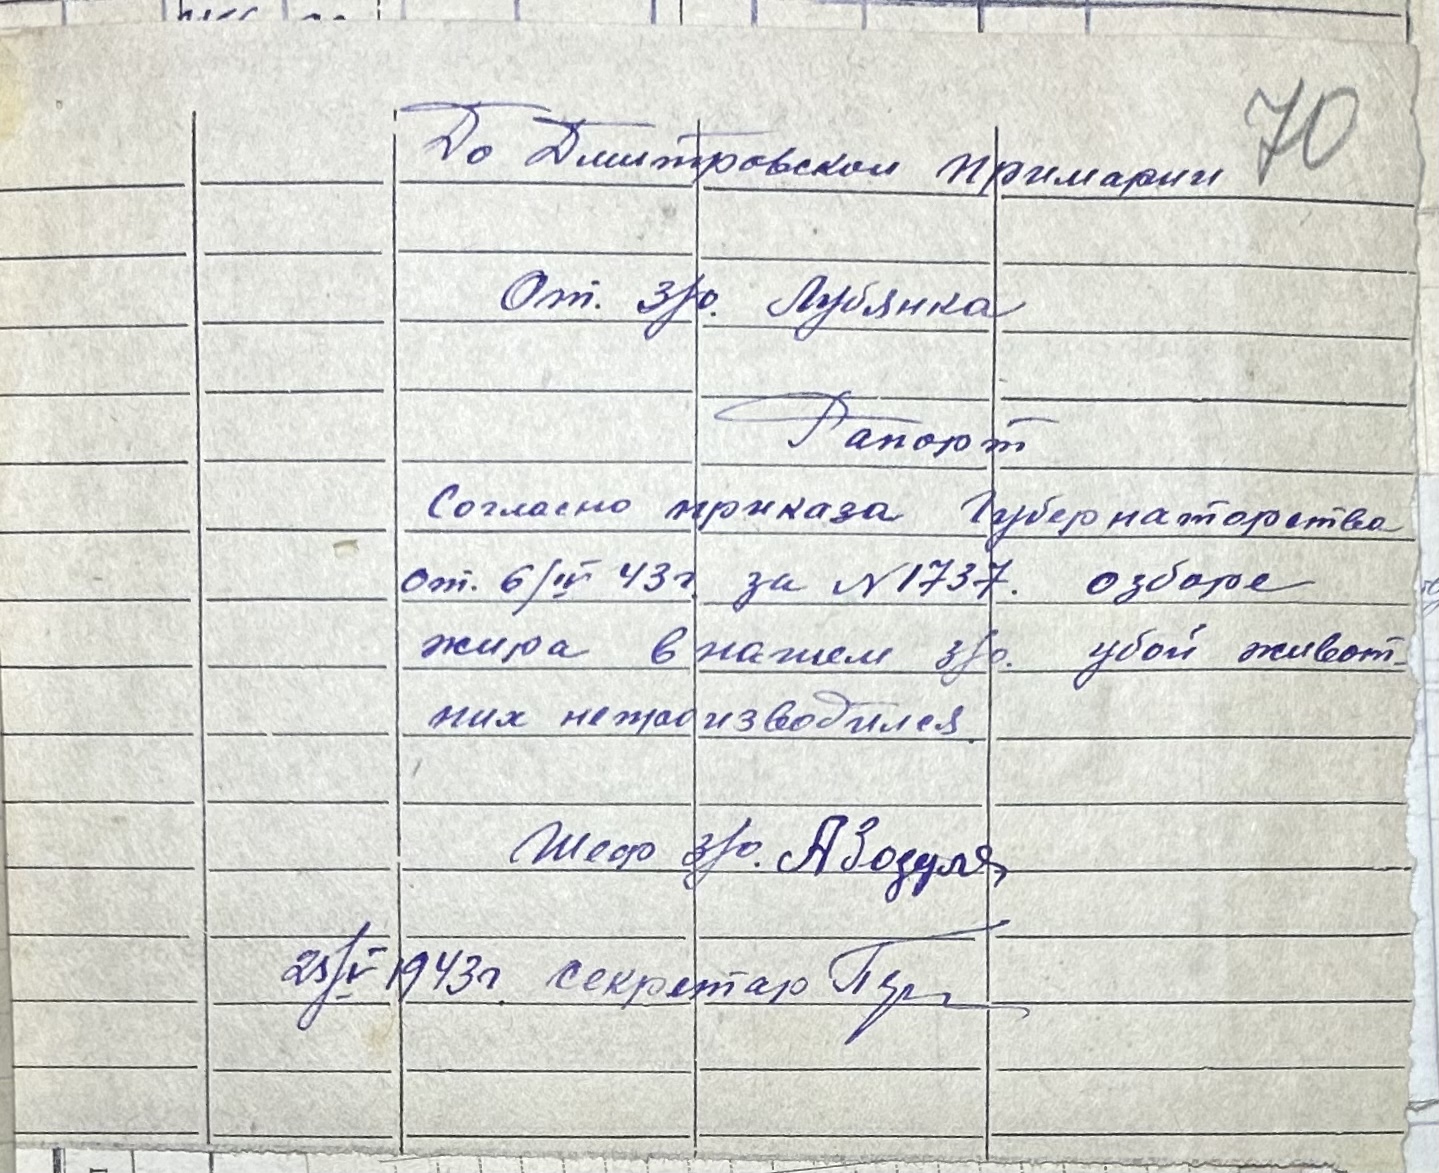 70
До Дмитровской Примарии
От. з/о. Лубянка
Рапорт
Согласно приказа Губернаторства
от. 6/IV 43г за N1737. озборе
жира в нашем з/о. убой живот-
них непроизводился.
Шеф з/о. А Зозуля
25/V 1943г. секретар